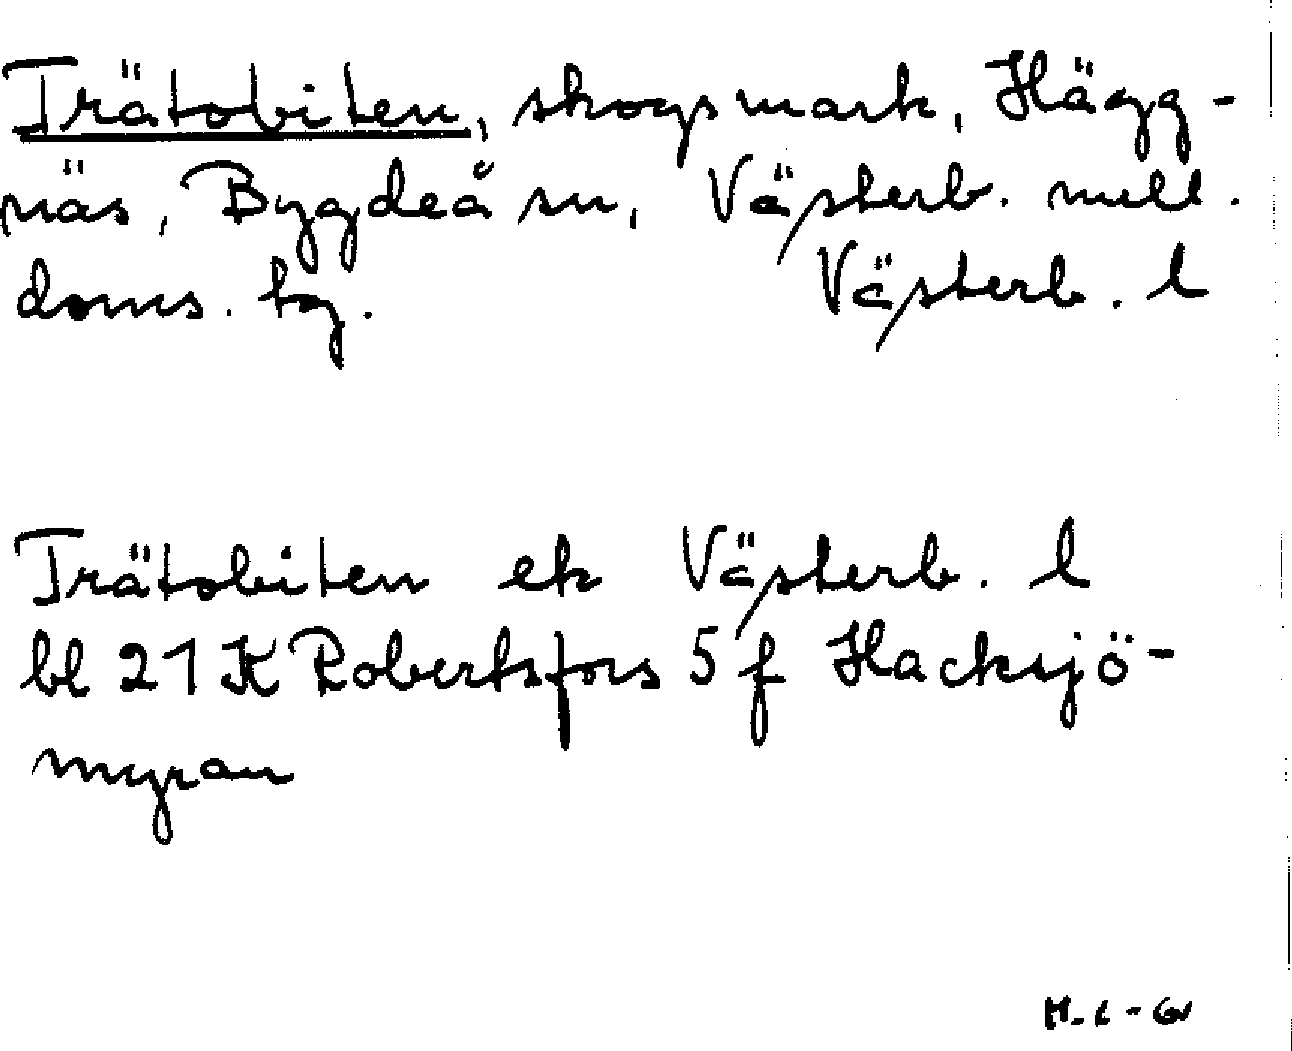 Trätobiten, skogsmark, Hägg-
näs, Bygdeå sn, Västerb. mell.
doms. tg. Västerb. l
Trätobiten ek Västerb. l
bl 21 K Robertsfors 5 f Hacksjö-
myran